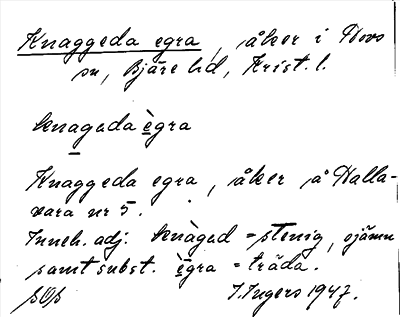 Knaggeda egra, åker i Hovs
sn, Bjäre hd, Krist. l.
knagada ègra
Knaggeda egra, åker å Halla-
vara nr 5.
Inneh. adj. knàgad = stenig, ojämn
samt subst. ègra = träda.
I. Ingers 1947.